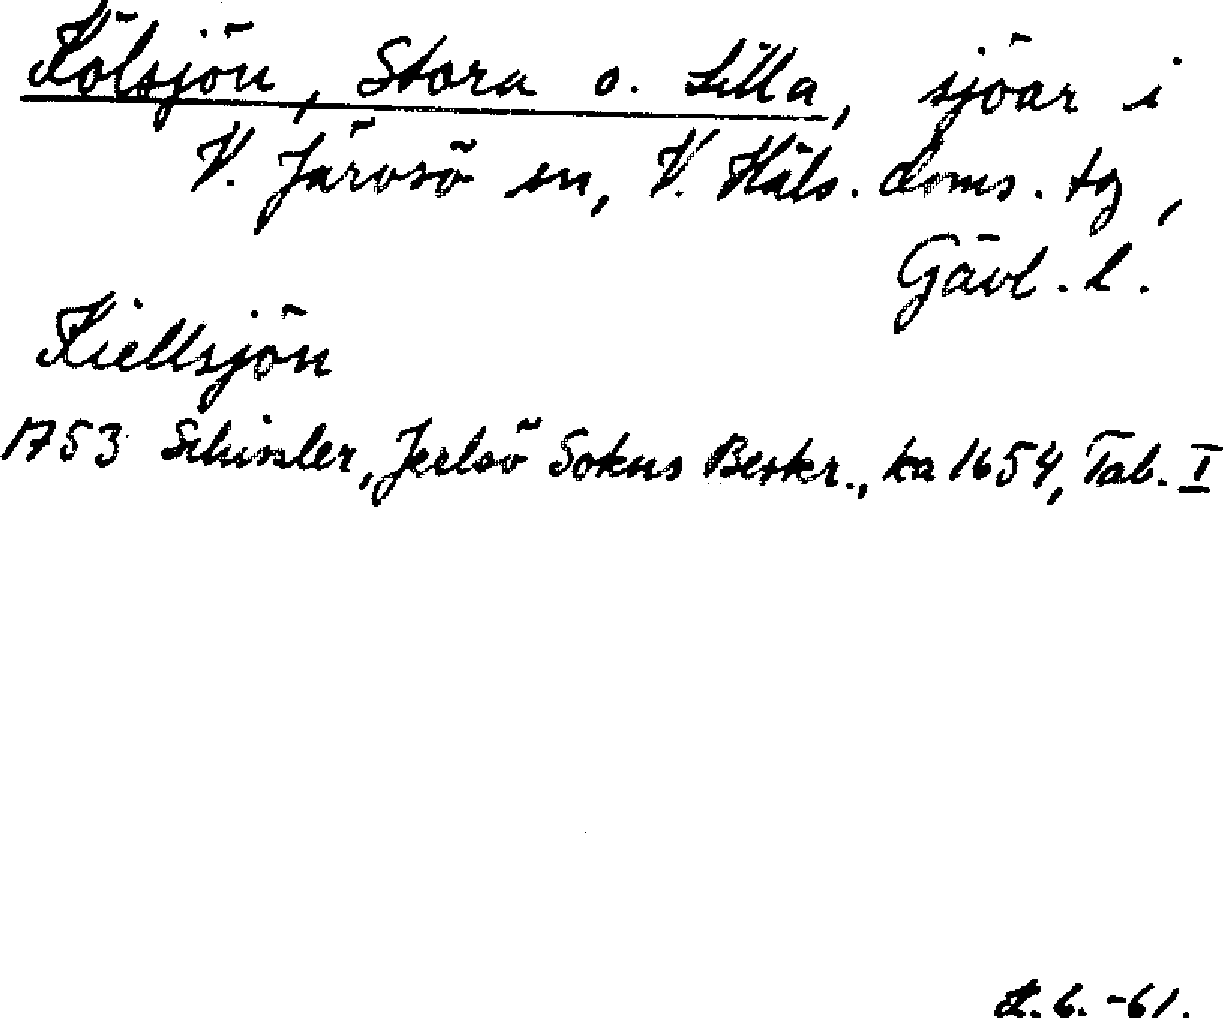 Kölsjön, Stora o. Lilla, sjöar i
V. Järvsö sn, V. Häls. doms. tg,
Gävl. l.
Kiellsjön
1753 Schissler, Jerlsö Sokns Beskr., ka 1654, Tab. I
6. -61.